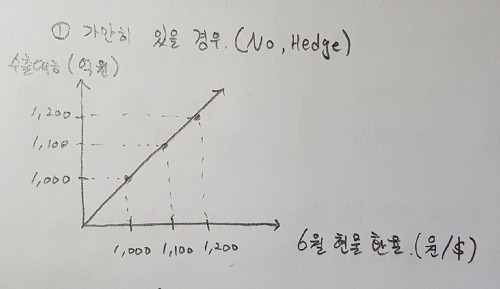 ① 가만히 있을 경우. (No, Hedge)
수출대금 (억원)
1,200
1,100
1,000
1,000 1,100 1,200
6월 현물 환율. (원/$)